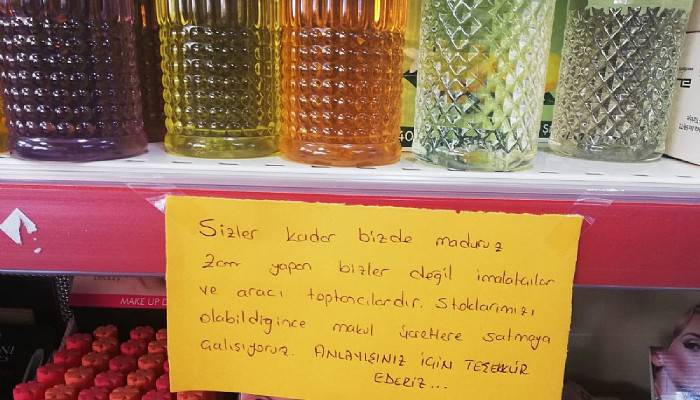 Sizler kadar bizde maduruz
Zam yapan bizler değil imalatcılar
ve aracı toptancılardır. Stoklarımızı
olabildiğince makul ücretlere satmaya
Çalışıyoruz. ANLAYIŞINIZ İÇİN TEŞEKKÜR
EDERİZ...
MAKE UP D